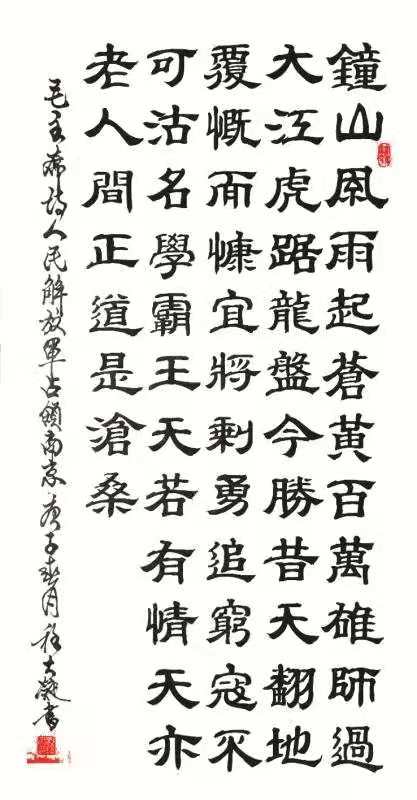 鐘山風雨起蒼黃百萬雄師過
大江虎踞龍盤今勝昔天翻地
覆慨而慷宜將剩勇追窮寇不
可沽名學霸王天若有情天亦
老人間正道是滄桑
毛主席詩人民解放軍占領南京 庚子春月 書